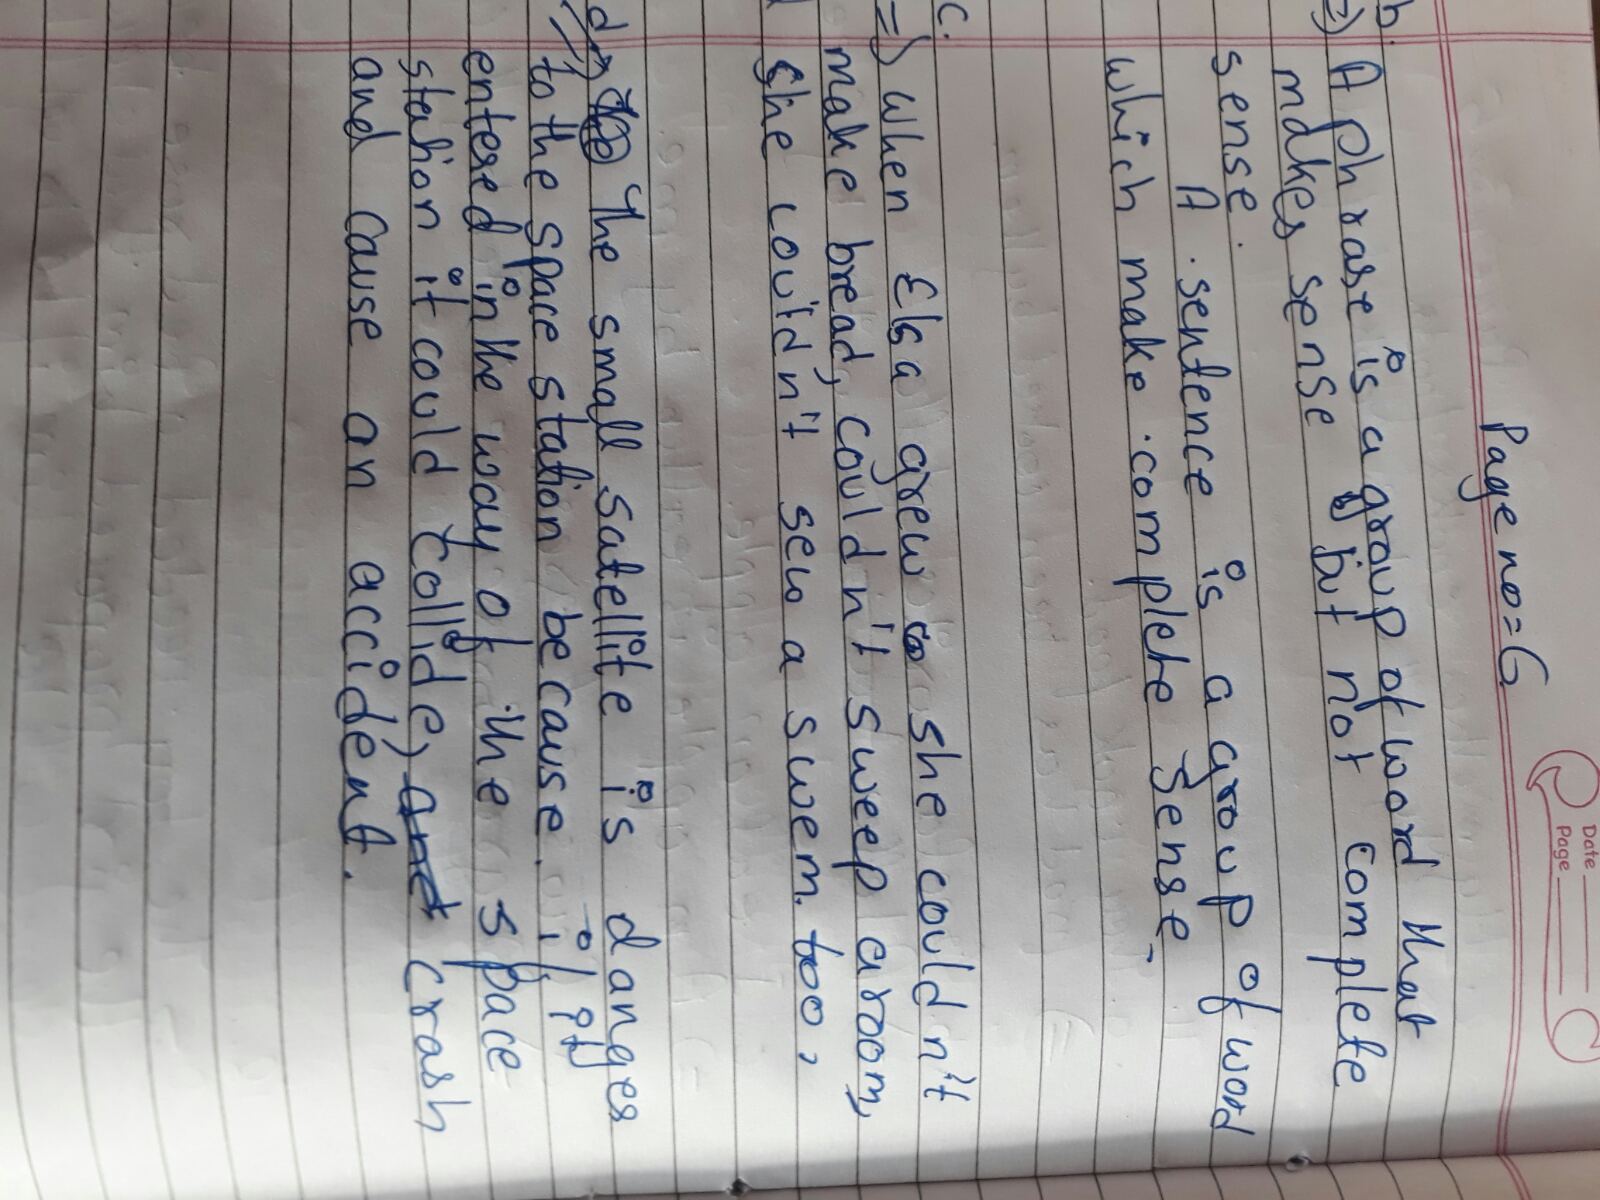 Page no = 6
Date
Page
b.
=) A phrase is a group of word that
makes sense but not complete
sense.
A sentence is a group of word
which make complete sense.
c.
=) When Elsa grew she couldn't
make bread, couldn't sweep a room,
She couldn't sew a swem too,
d The small satellite is danges
to the space station because if it
entered in the way of the space
station it could collide, and crash
and cause an accident.